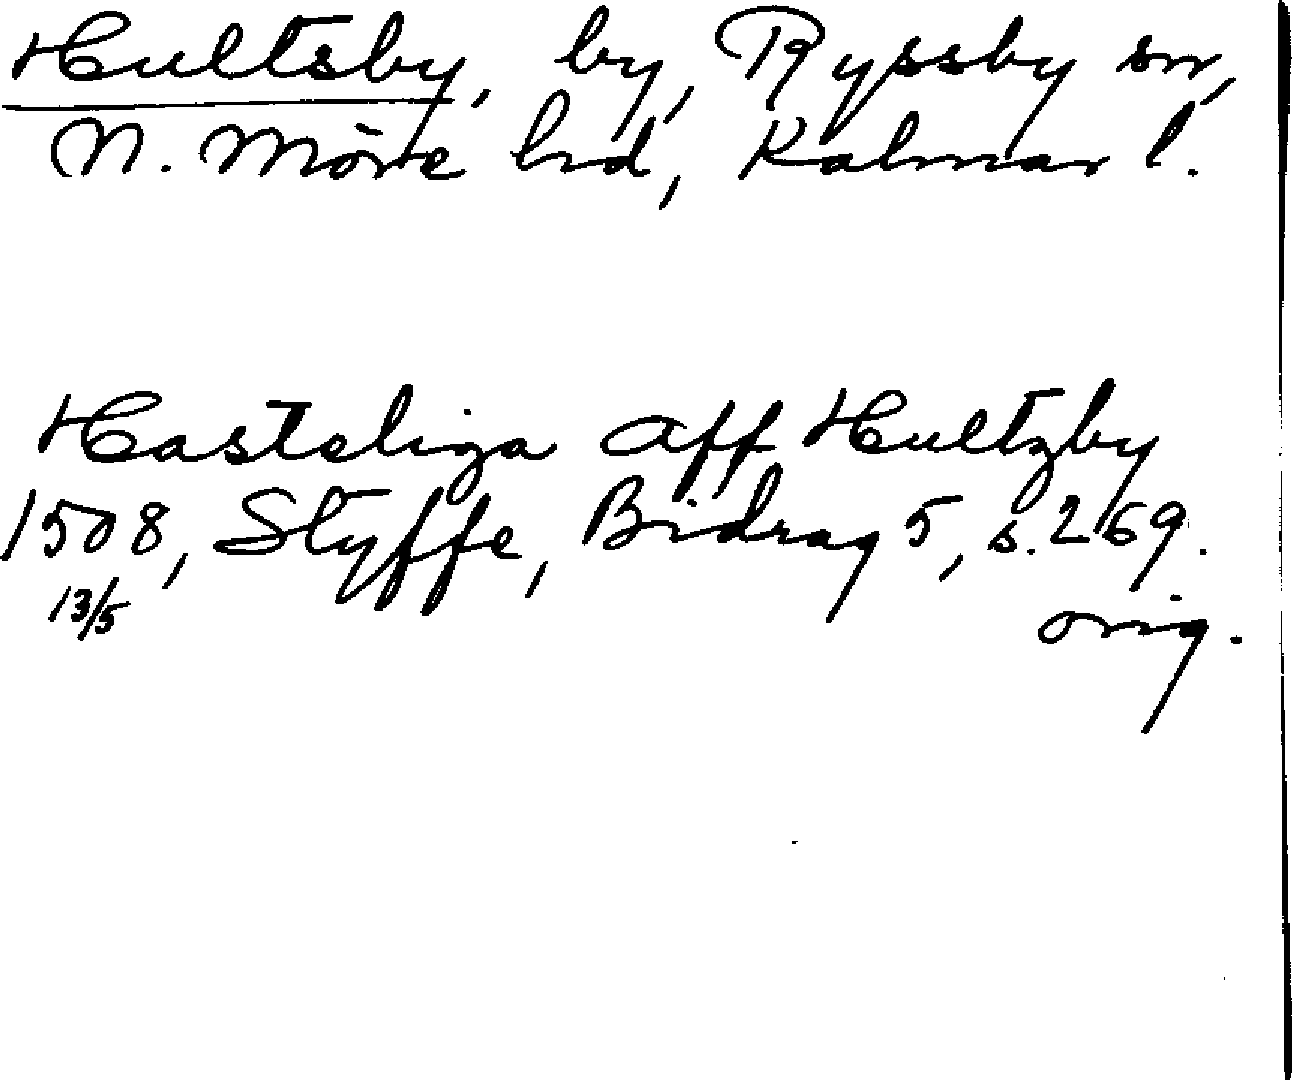 Hultsby, by, Ryssby sn,
N. Möre hd, Kalmar l.
Hasteliga aff Hultzby
1508, Styffe, Bidrag 5, s. 269.
13/5
orig.